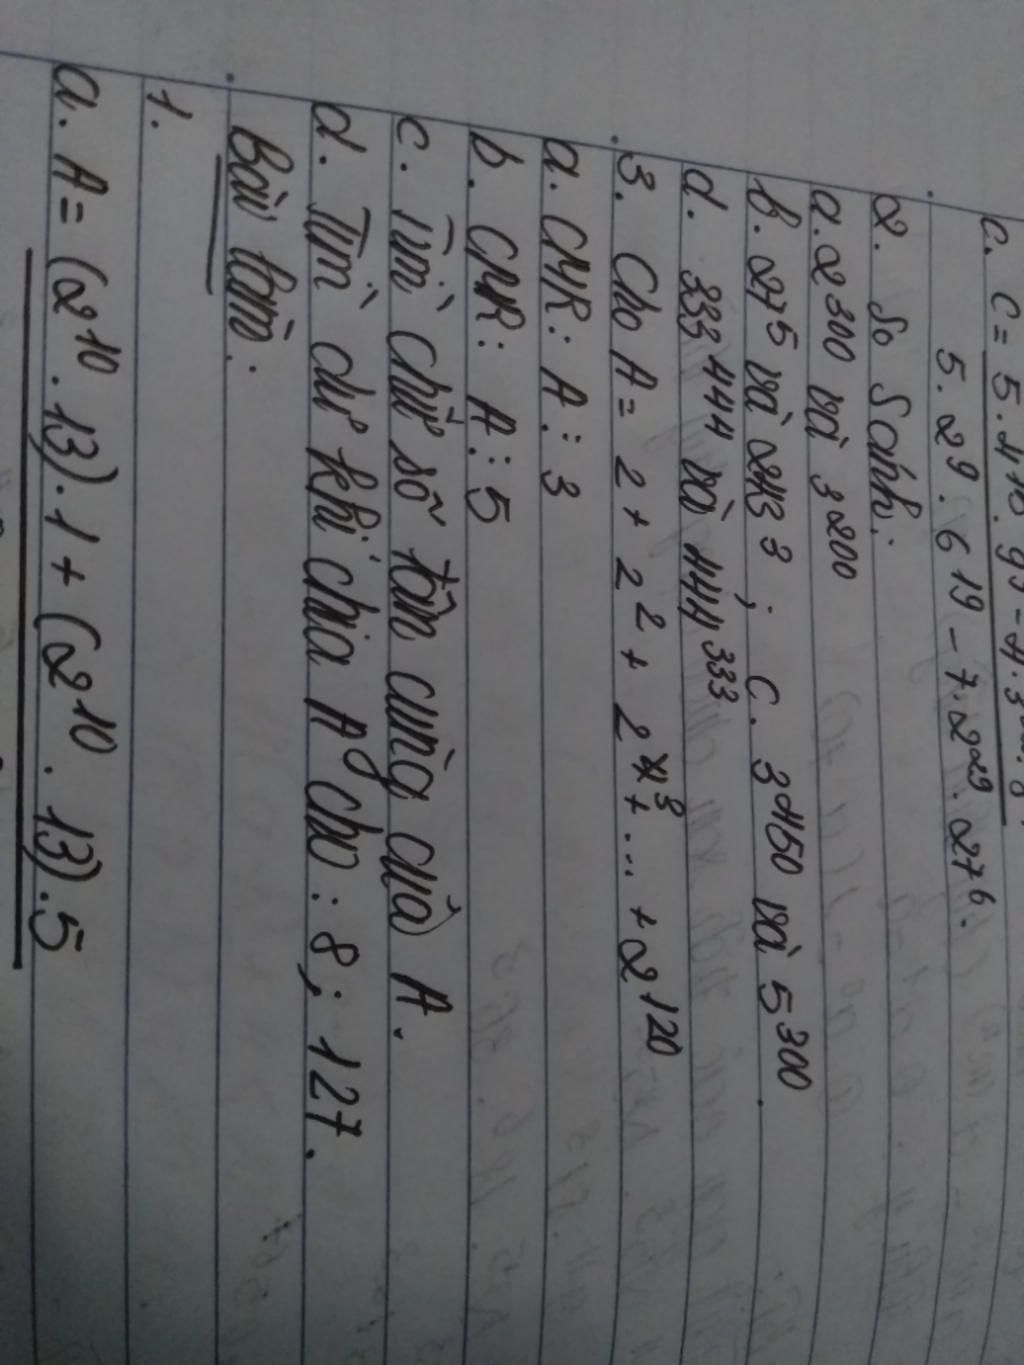 c. C = 5.4¹⁵.9⁹ - 4.3
5.2⁹.6¹⁹ - 7.2²⁹.27⁶.
2. So Sánh:
a. 2³⁰⁰ và 3²⁰⁰
b. 27⁵ và 243³ ; c. 3⁴⁵⁰ và 5³⁰⁰.
d. 333⁴⁴⁴ và 444³³³
3. Cho A = 2 + 2² + 2³ + ... + 2¹²⁰
a. CMR: A ⋮ 3
b. CMR: A ⋮ 5
c. Tìm chữ số tận cùng của A.
d. Tìm dư khi chia A cho : 8 ; 127.
Bài làm.
1.
a. A = (2¹⁰.13).1 + (2¹⁰.13).5